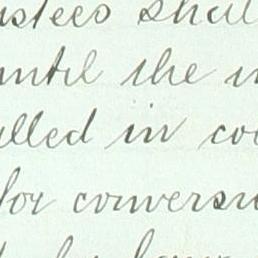 ustees shall
until the
alled in
for conversi